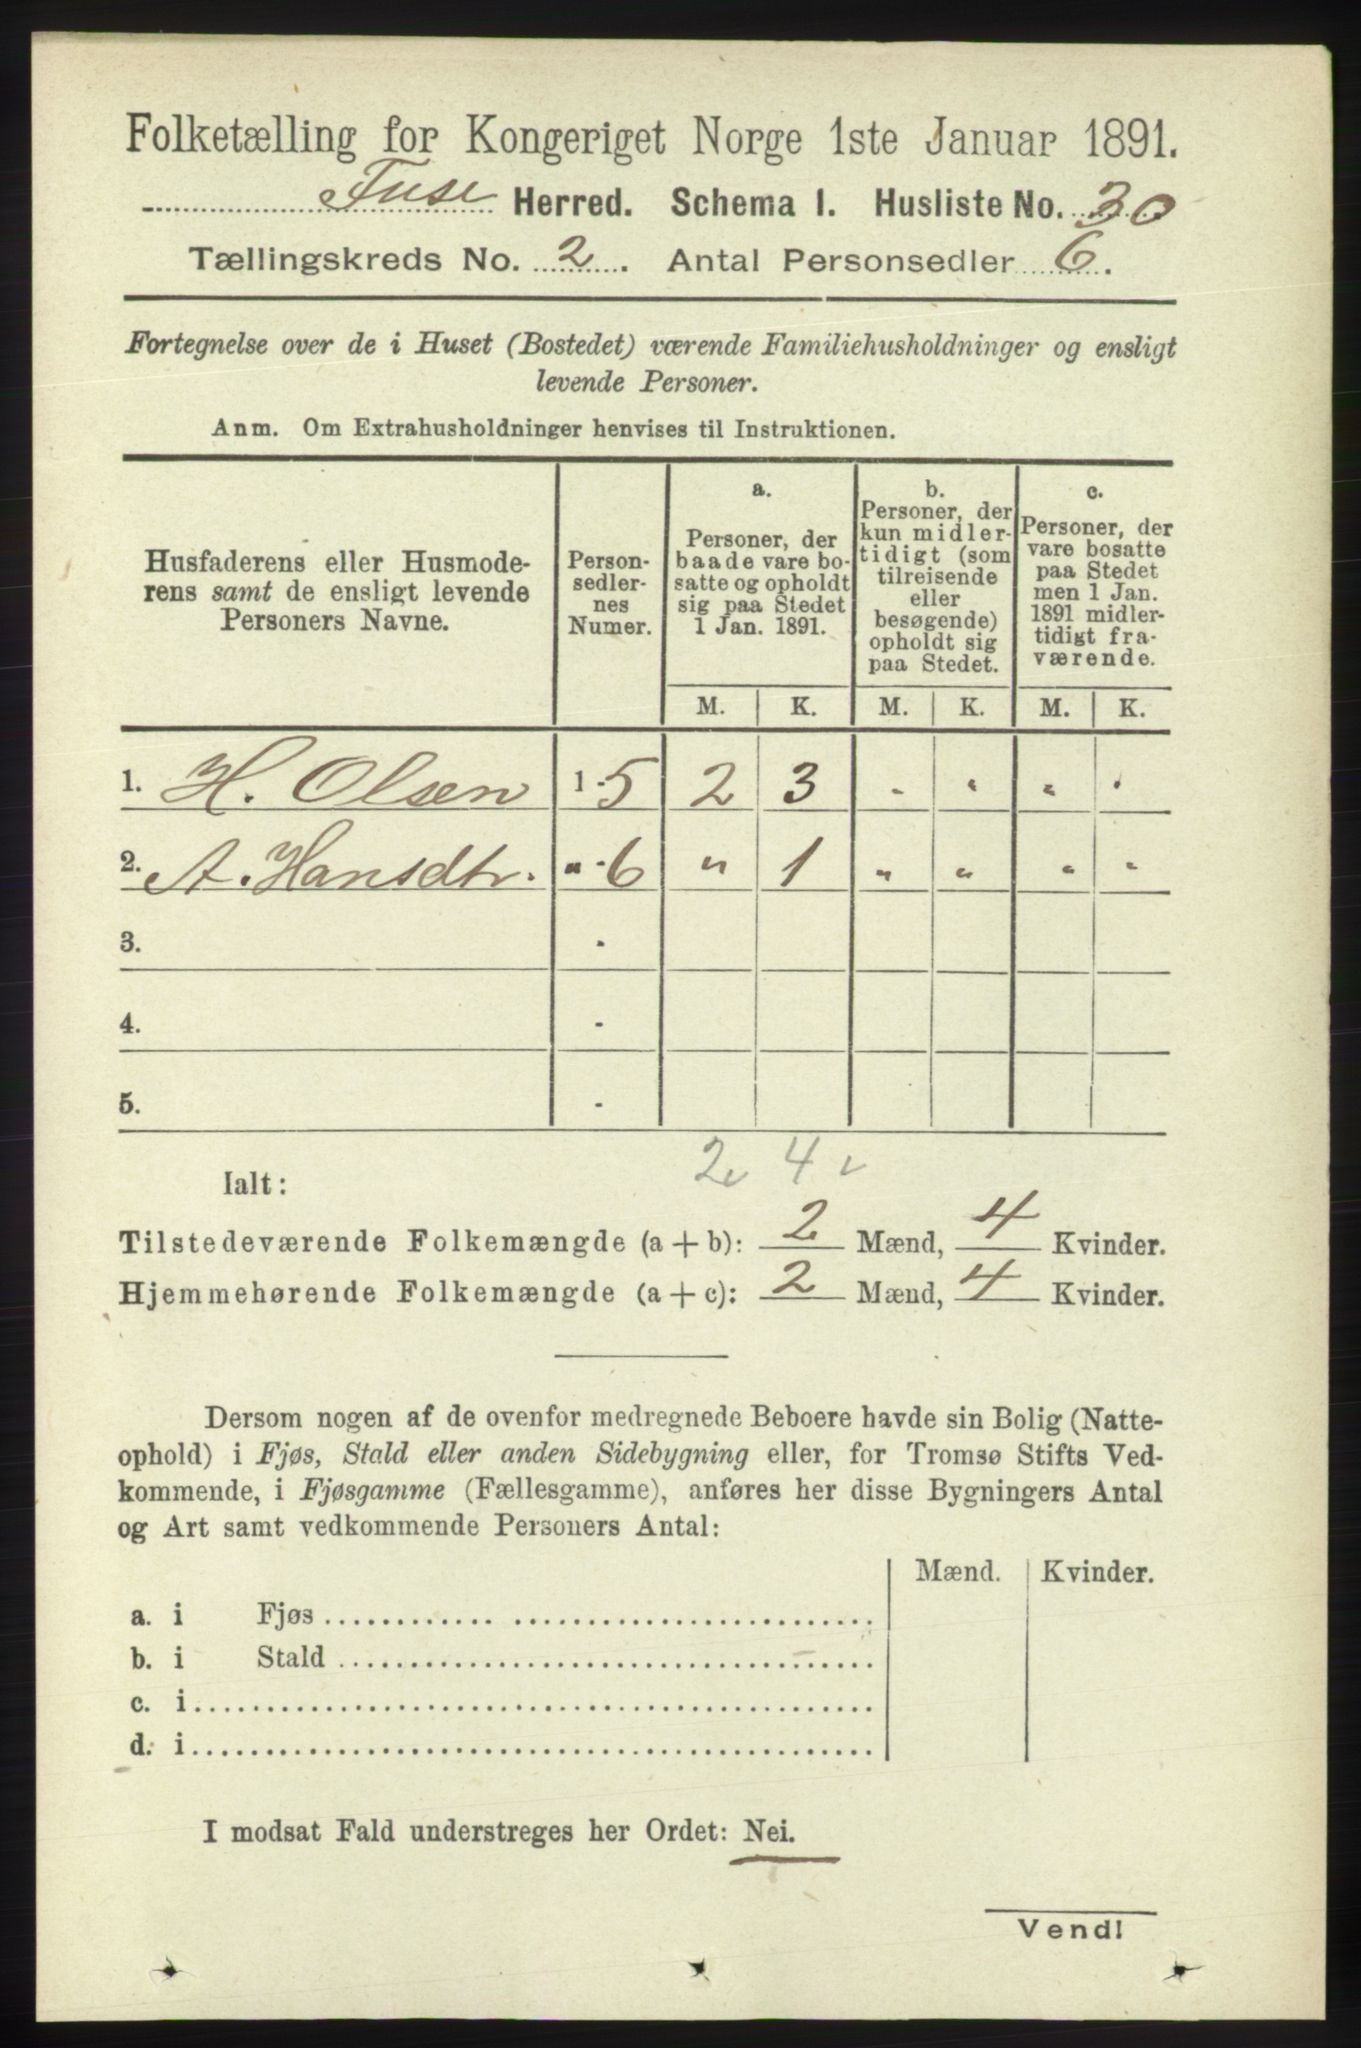 Folketælling for Kongeriget Norge 1ste Januar 1891.
Fuse Herred. Schema 1. Husliste No. 30
Tællingskreds No. 2. Antal Personsedler 6.
Fortegnelse over de i Huset (Bostedet) værende Familiehusholdninger og ensligt
levende Personer.
Anm. Om Extrahusholdninger henvises til Instruktionen.
Husfaderens eller Husmode-
rens samt de ensligt levende
Personers Navne.
Person-
sedler-
nes
Numer.
a.
Personer, der
baade vare bo-
satte og opholdt
sig paa Stedet
1 Jan. 1891.
b.
Personer, der
kun midler-
tidigt (som
tilreisende
eller
besøgende)
opholdt sig
paa Stedet.
c.
Personer, der
vare bosatte
paa Stedet
men 1 Jan.
1891 midler-
tidigt fra-
værende.
M. K. M. K. M. K.
1. H. Olsen 1-5 2 3 - " " "
2. A. Hansdtr. "-6 " 1 " " " "
3. -
4. -
5. -
2 4
Ialt:
Tilstedeværende Folkemængde (a + b): 2 Mænd, 4 Kvinder.
Hjemmehørende Folkemængde (a + c): 2 Mænd, 4 Kvinder.
Dersom nogen af de ovenfor medregnede Beboere havde sin Bolig (Natte-
ophold) i Fjøs, Stald eller anden Sidebygning eller, for Tromsø Stifts Ved-
kommende, i Fjøsgamme (Fællesgamme), anføres her disse Bygningers Antal
og Art samt vedkommende Personers Antal:
Mænd. Kvinder.
a. i Fjøs
b. i Stald
c. i
d. i
I modsat Fald understreges her Ordet: Nei.
Vend!